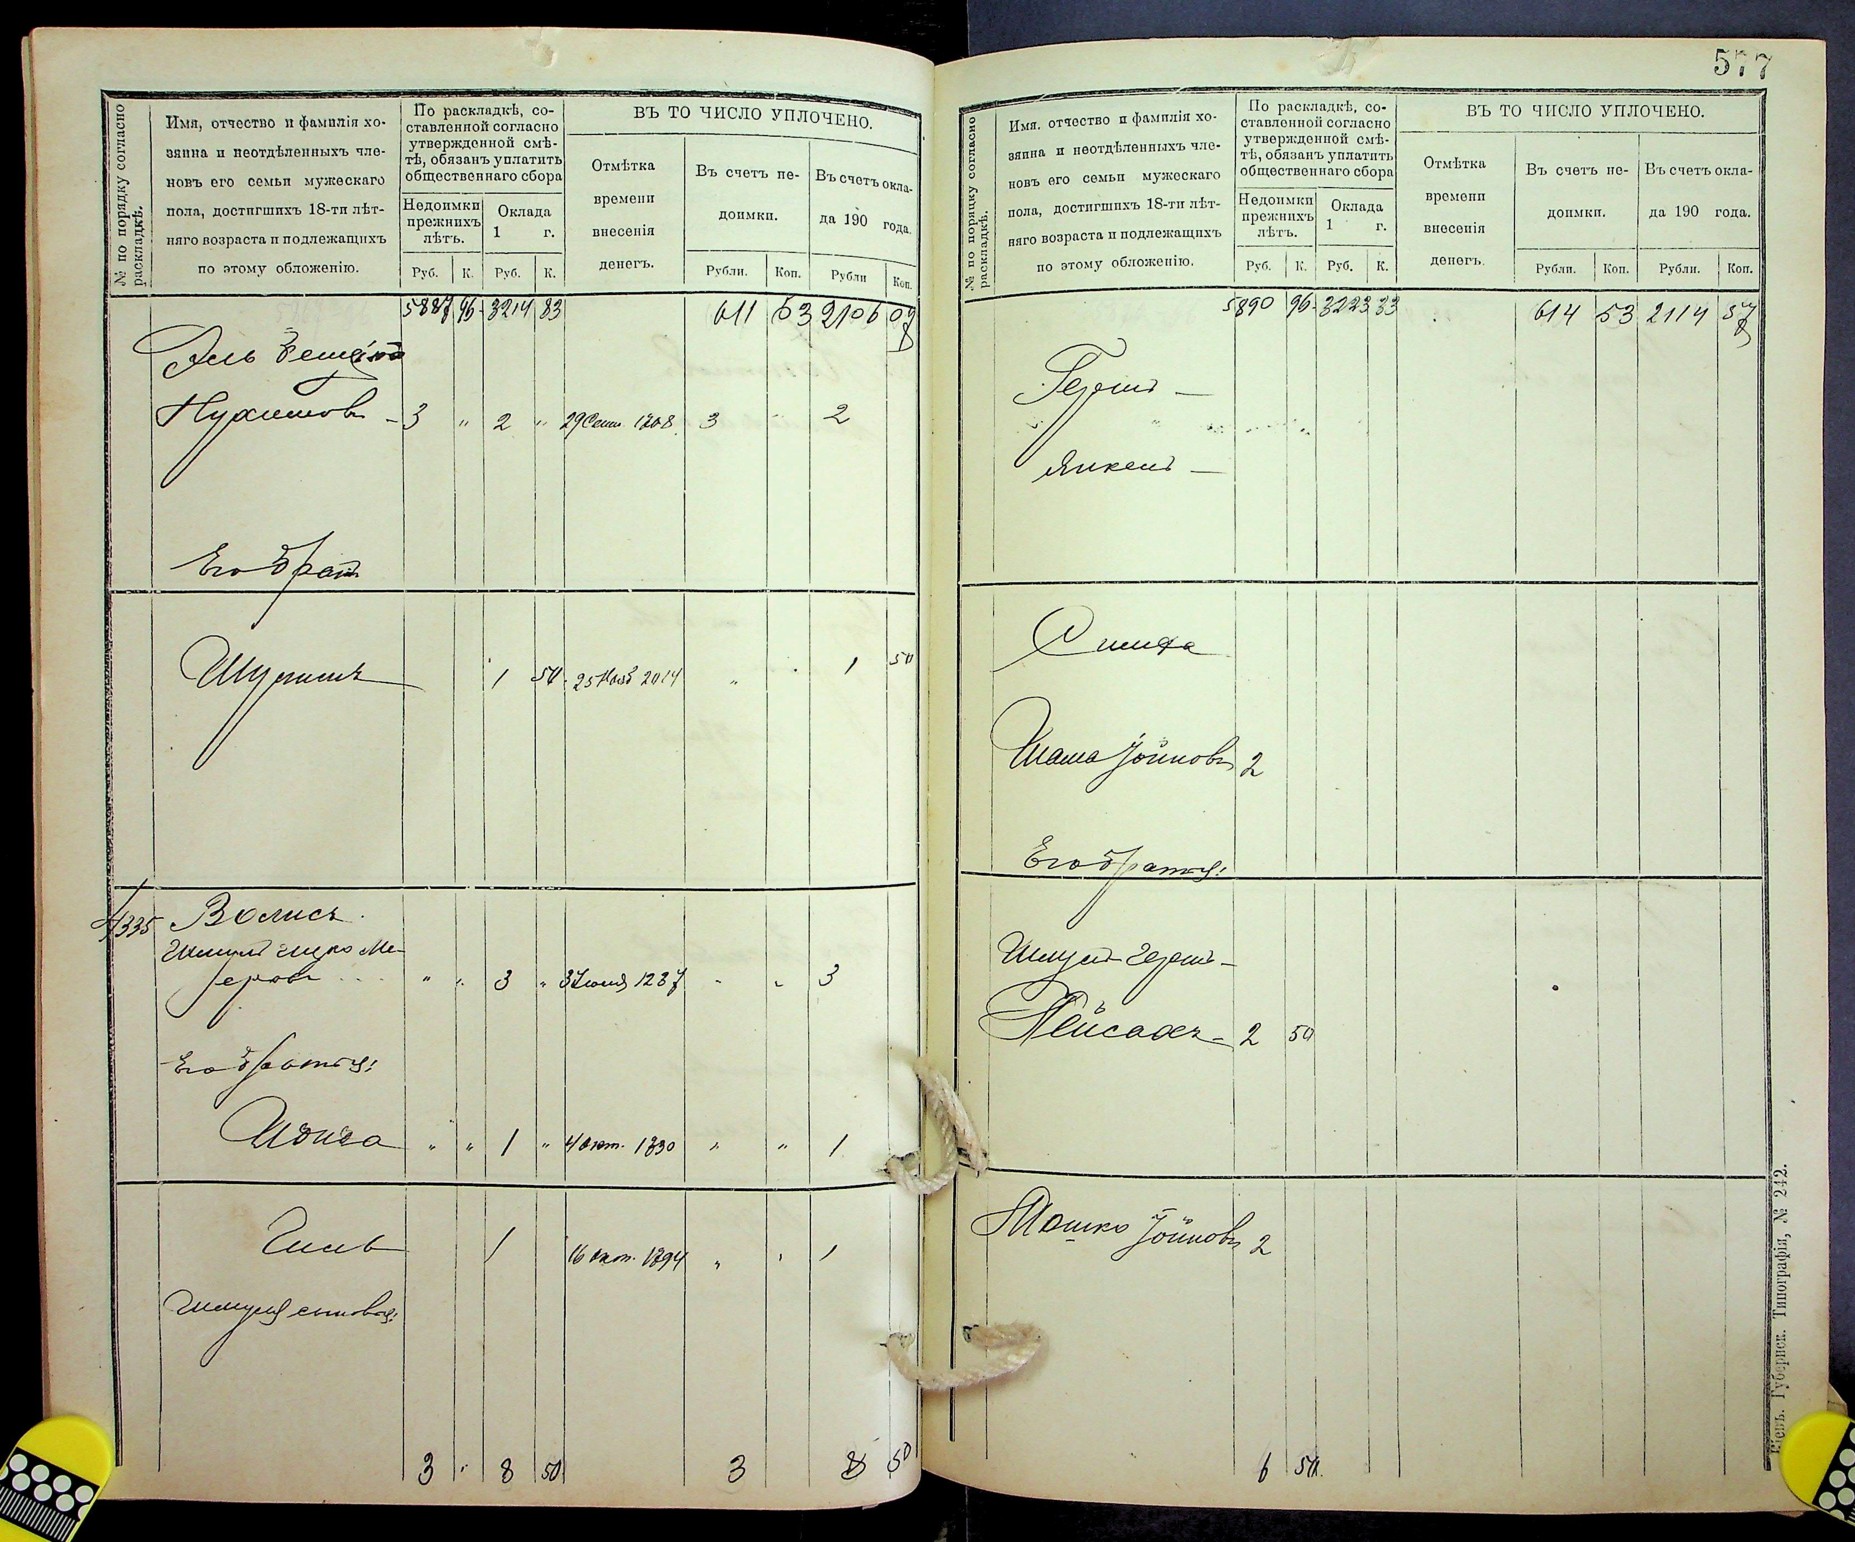 577
№ по порядку согласно раскладкѣ.
Имя, отчество и фамилія хо-
зяина и неотдѣленныхъ чле-
новъ его семьи мужескаго
пола, достигшихъ 18-ти лѣт-
няго возраста и подлежащихъ
по этому обложенію.
По раскладкѣ, со-
ставленной согласно
утвержденной смѣ-
тѣ, обязанъ уплатить
общественнаго сбора
Недоимки прежнихъ лѣтъ.
Оклада 1 г.
Руб. К. Руб. К.
ВЪ ТО ЧИСЛО УПЛОЧЕНО.
Отмѣтка
времени
внесенія
денегъ.
Въ счетъ не-
доимки.
Въ счетъ окла-
да 190 года.
Рубли. Коп. Рубли Коп.
5887 96 3214 83 611 53 2106 07
Нухимовъ - 3 " 2 " 29 Сент. 1208 3 2
Его братъ
1 50 25 Нояб 2014 " 1 50
4335 Волисъ
Шмуль Ицко Ме-
еровъ " " 3 " 3 Іюля 1237 " " 3
Его братья:
" " 1 " 4 Окт. 1330 " " 1
1 16 Окт. 1394 " " 1
Шмуля сыновья:
3 " 8 50 3 8 50
№ по порядку согласно раскладкѣ.
Имя, отчество и фамилія хо-
зяина и неотдѣленныхъ чле-
новъ его семьи мужескаго
пола, достигшихъ 18-ти лѣт-
няго возраста и подлежащихъ
по этому обложенію.
По раскладкѣ, со-
ставленной согласно
утвержденной смѣ-
тѣ, обязанъ уплатить
общественнаго сбора
Недоимки прежнихъ лѣтъ.
Оклада 1 г.
Руб. К. Руб. К.
ВЪ ТО ЧИСЛО УПЛОЧЕНО.
Отмѣтка
времени
внесенія
денегъ.
Въ счетъ не-
доимки.
Въ счетъ окла-
да 190 года.
Рубли. Коп. Рубли. Коп.
5890 96 3223 33 614 53 2114 57
Герш -
Янкель -
Симха
Шама Іойновъ 2
Его братья:
Шмуль Герш -
Пейсахъ - 2 50
Мошко Іойновъ 2
6 50
Кіевъ. Губернск. Типографія, № 242.